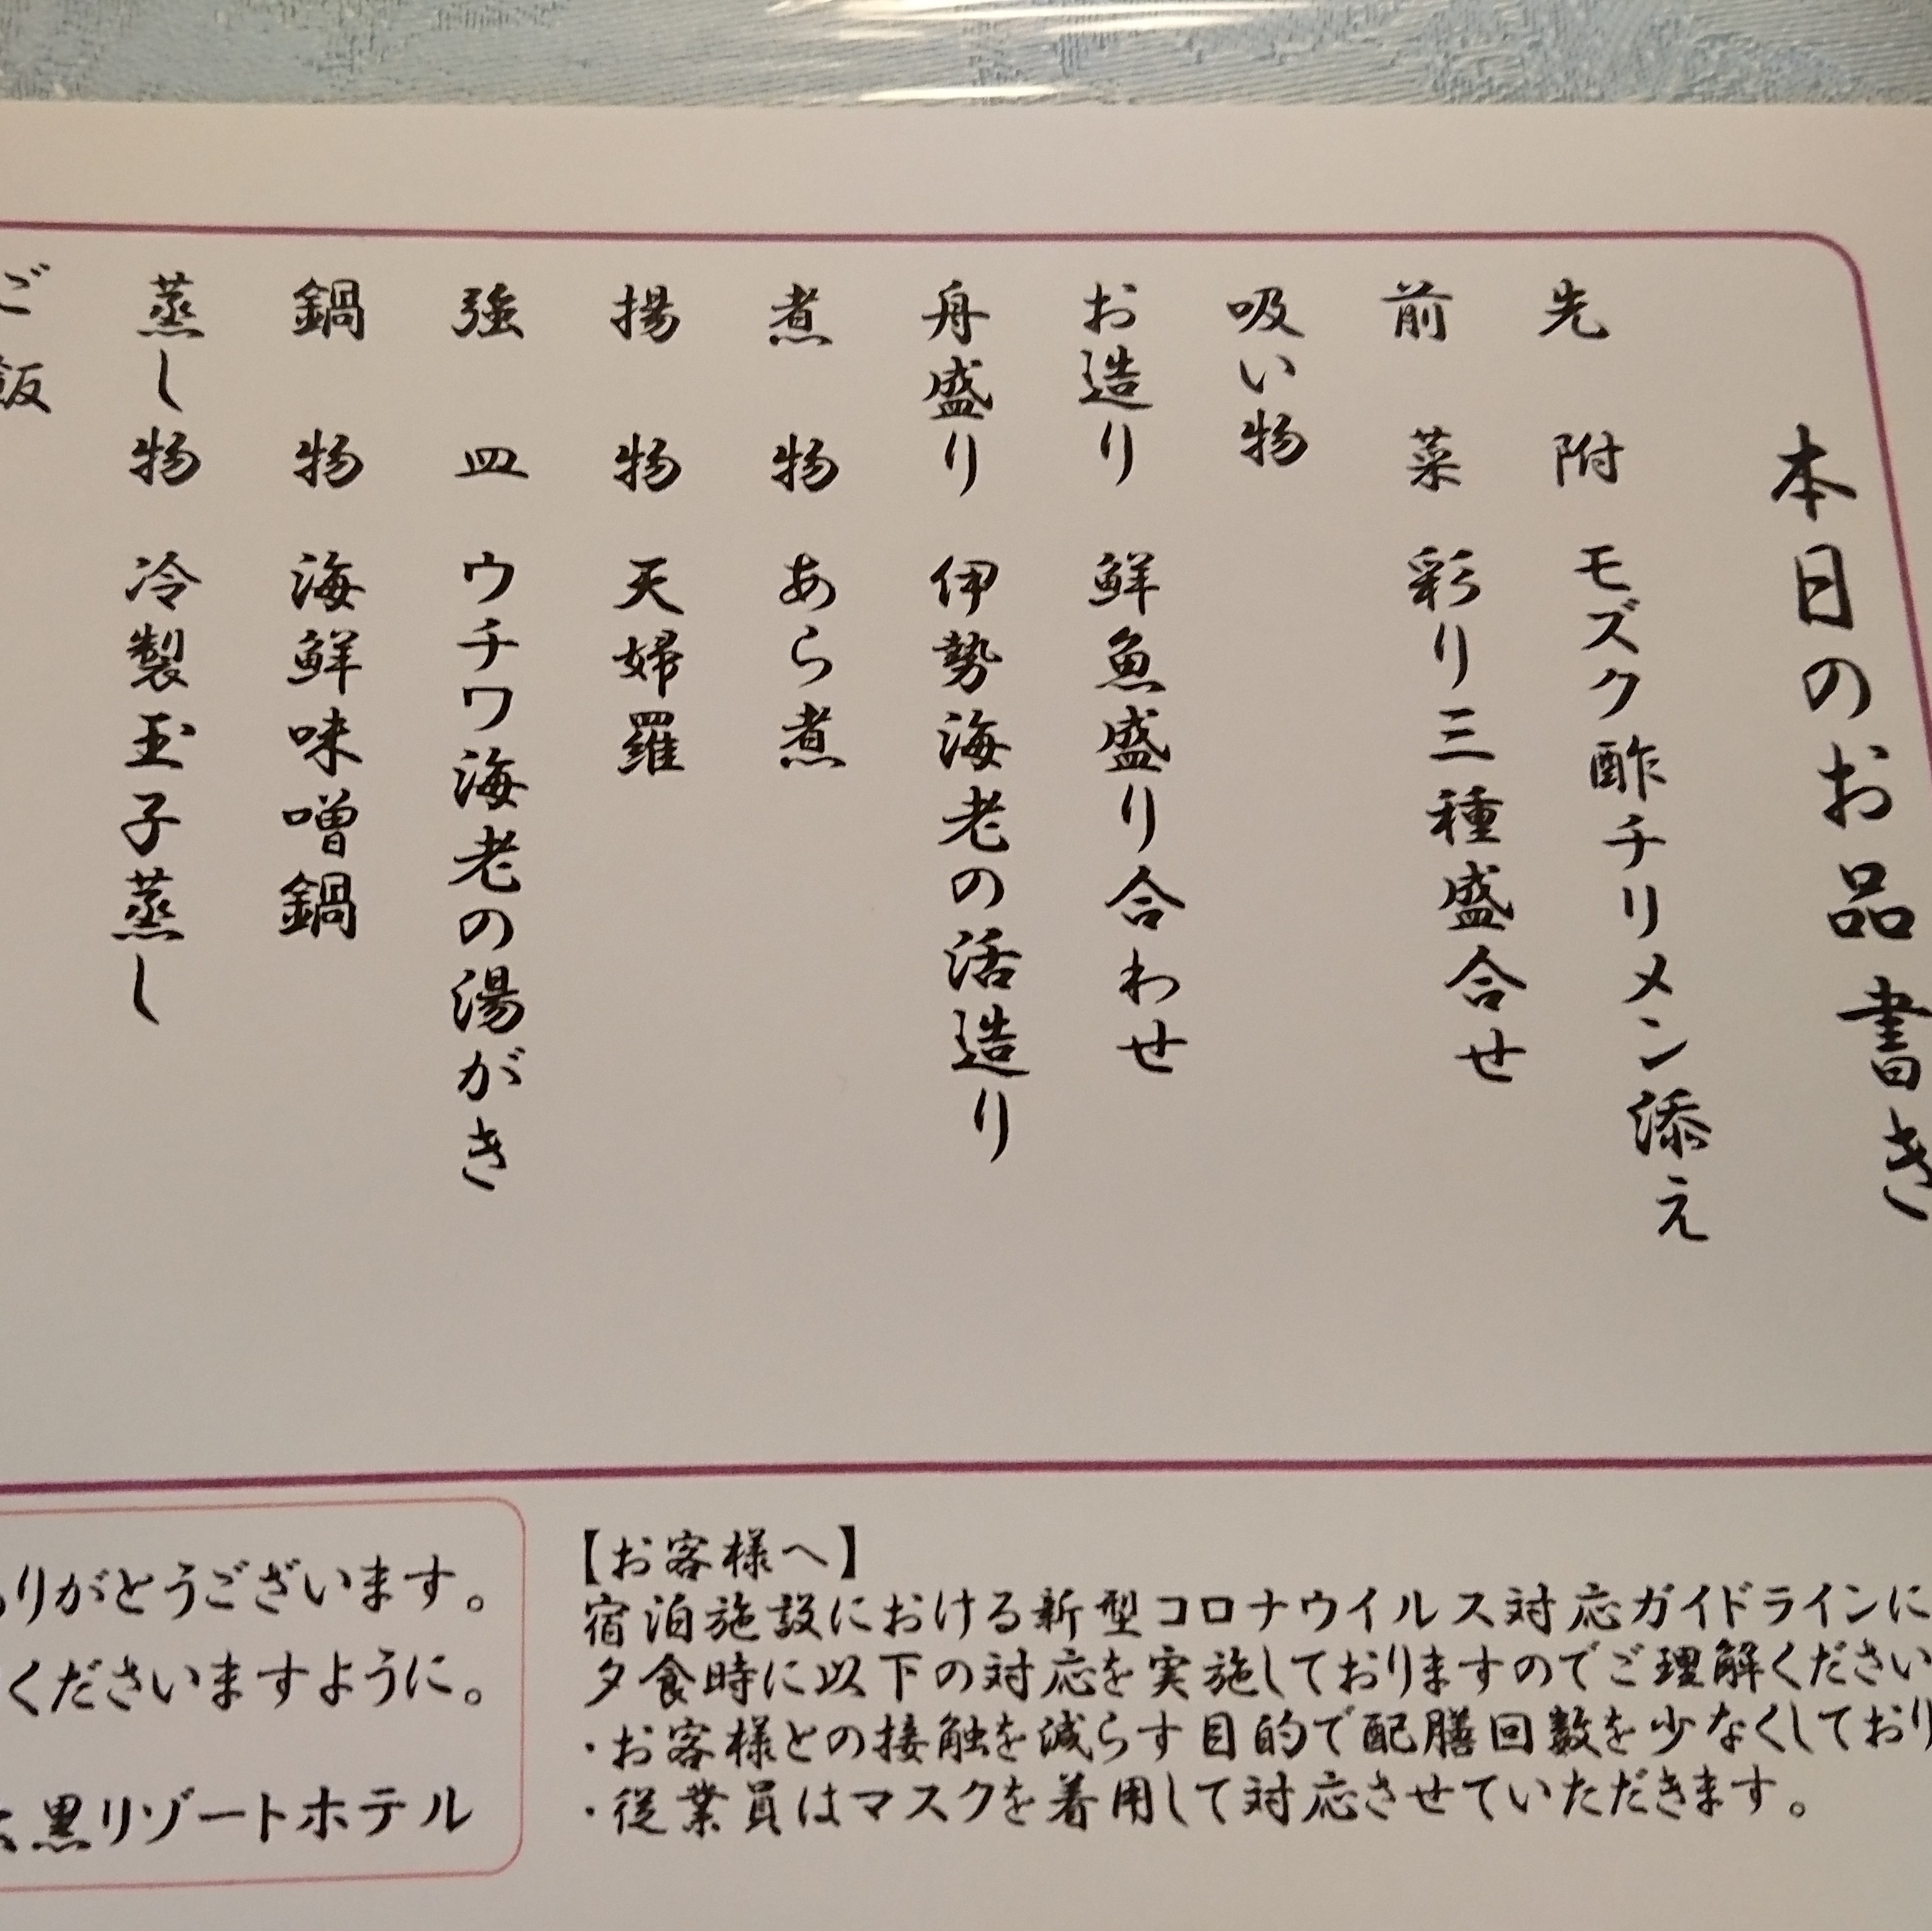 本日のお品書き
先附 モズク酢チリメン添え
前菜 彩り三種盛合せ
吸い物
お造り 鮮魚盛り合わせ
舟盛り 伊勢海老の活造り
煮物 あら煮
揚物 天婦羅
強皿 ウチワ海老の湯がき
鍋物 海鮮味噌鍋
蒸し物 冷製玉子蒸し
ご飯
【お客様へ】
宿泊施設における新型コロナウイルス対応ガイドラインに
夕食時に以下の対応を実施しておりますのでご理解ください
・お客様との接触を減らす目的で配膳回数を少なくしており
・従業員はマスクを着用して対応させていただきます。
りがとうございます。
くださいますように。
黒リゾートホテル